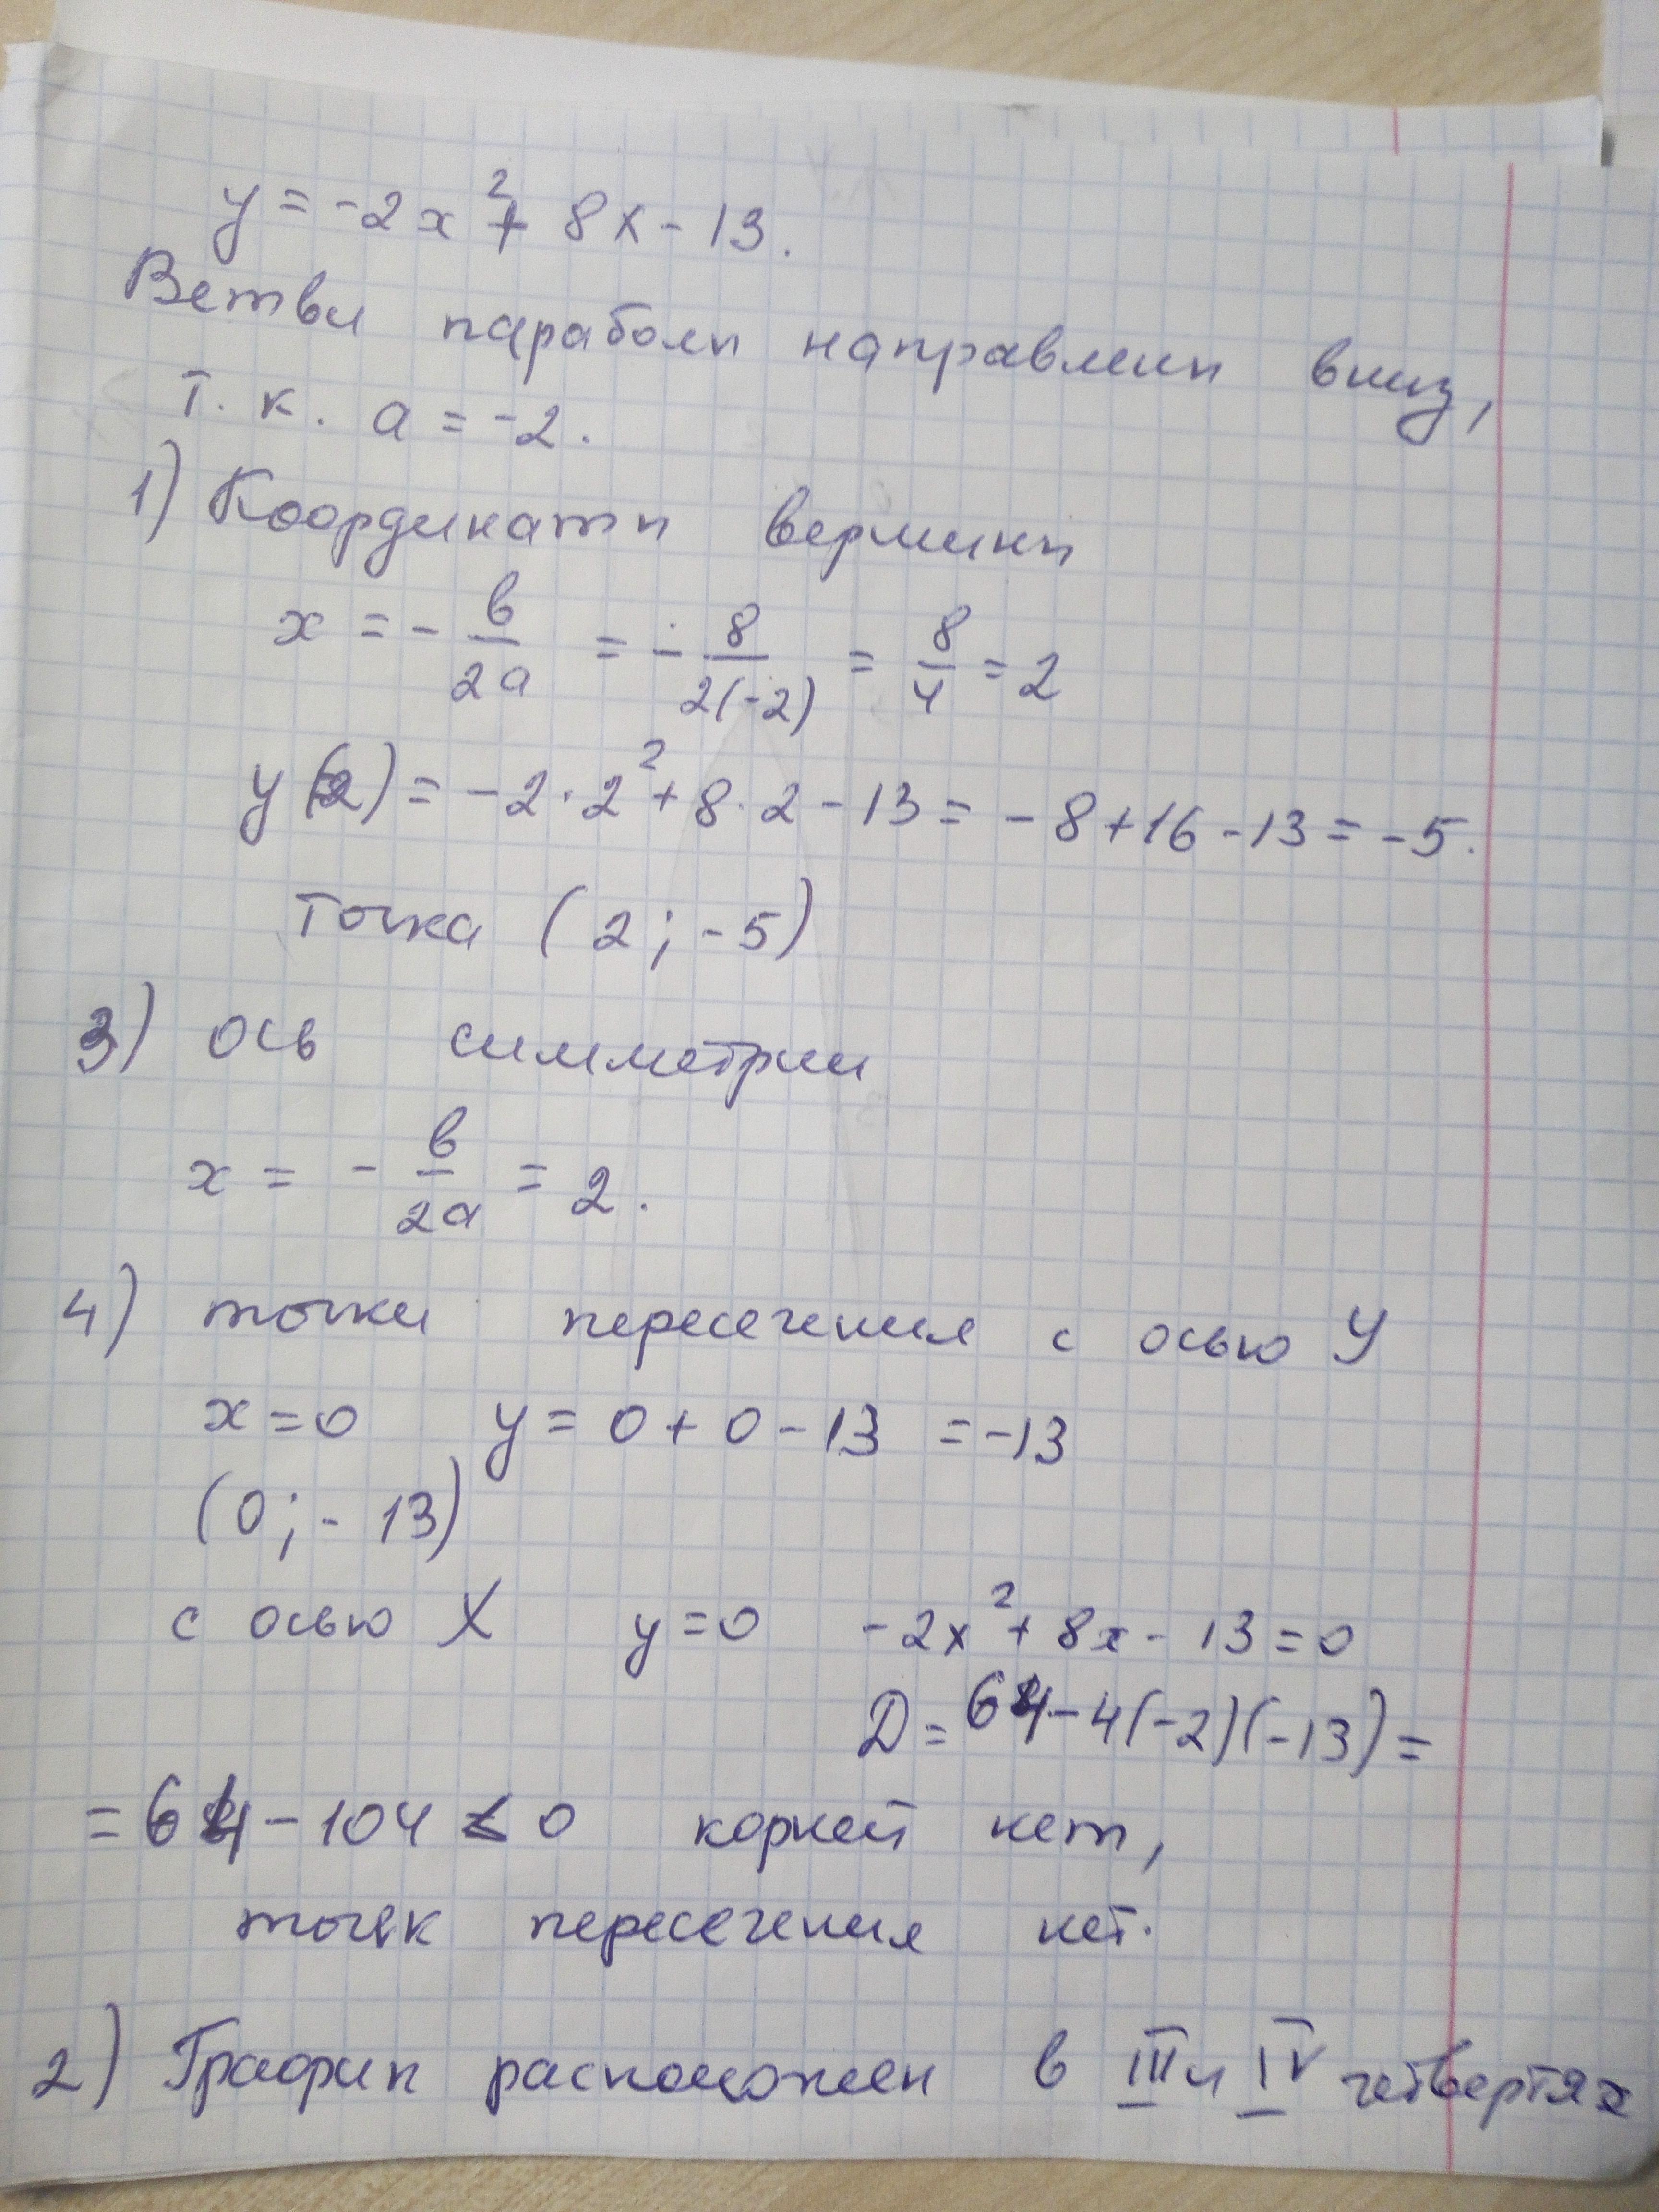 y = -2x² + 8x - 13.
Ветви параболы направлены вниз,
т. к. a = -2.
1) Координаты вершины
x = - b/2a = - 8/2(-2) = 8/4 = 2
y(2) = -2·2² + 8·2 - 13 = -8+16-13 = -5.
Точка (2; -5)
3) ось симметрии
x = - b/2a = 2.
4) точки пересечения с осью У
x=0 y = 0+0-13 = -13
(0; -13)
с осью X y=0 -2x²+8x-13=0
D=64-4(-2)(-13)=
=64-104<0 корней нет,
точек пересечения нет.
2) График расположен в III и IV четвертях